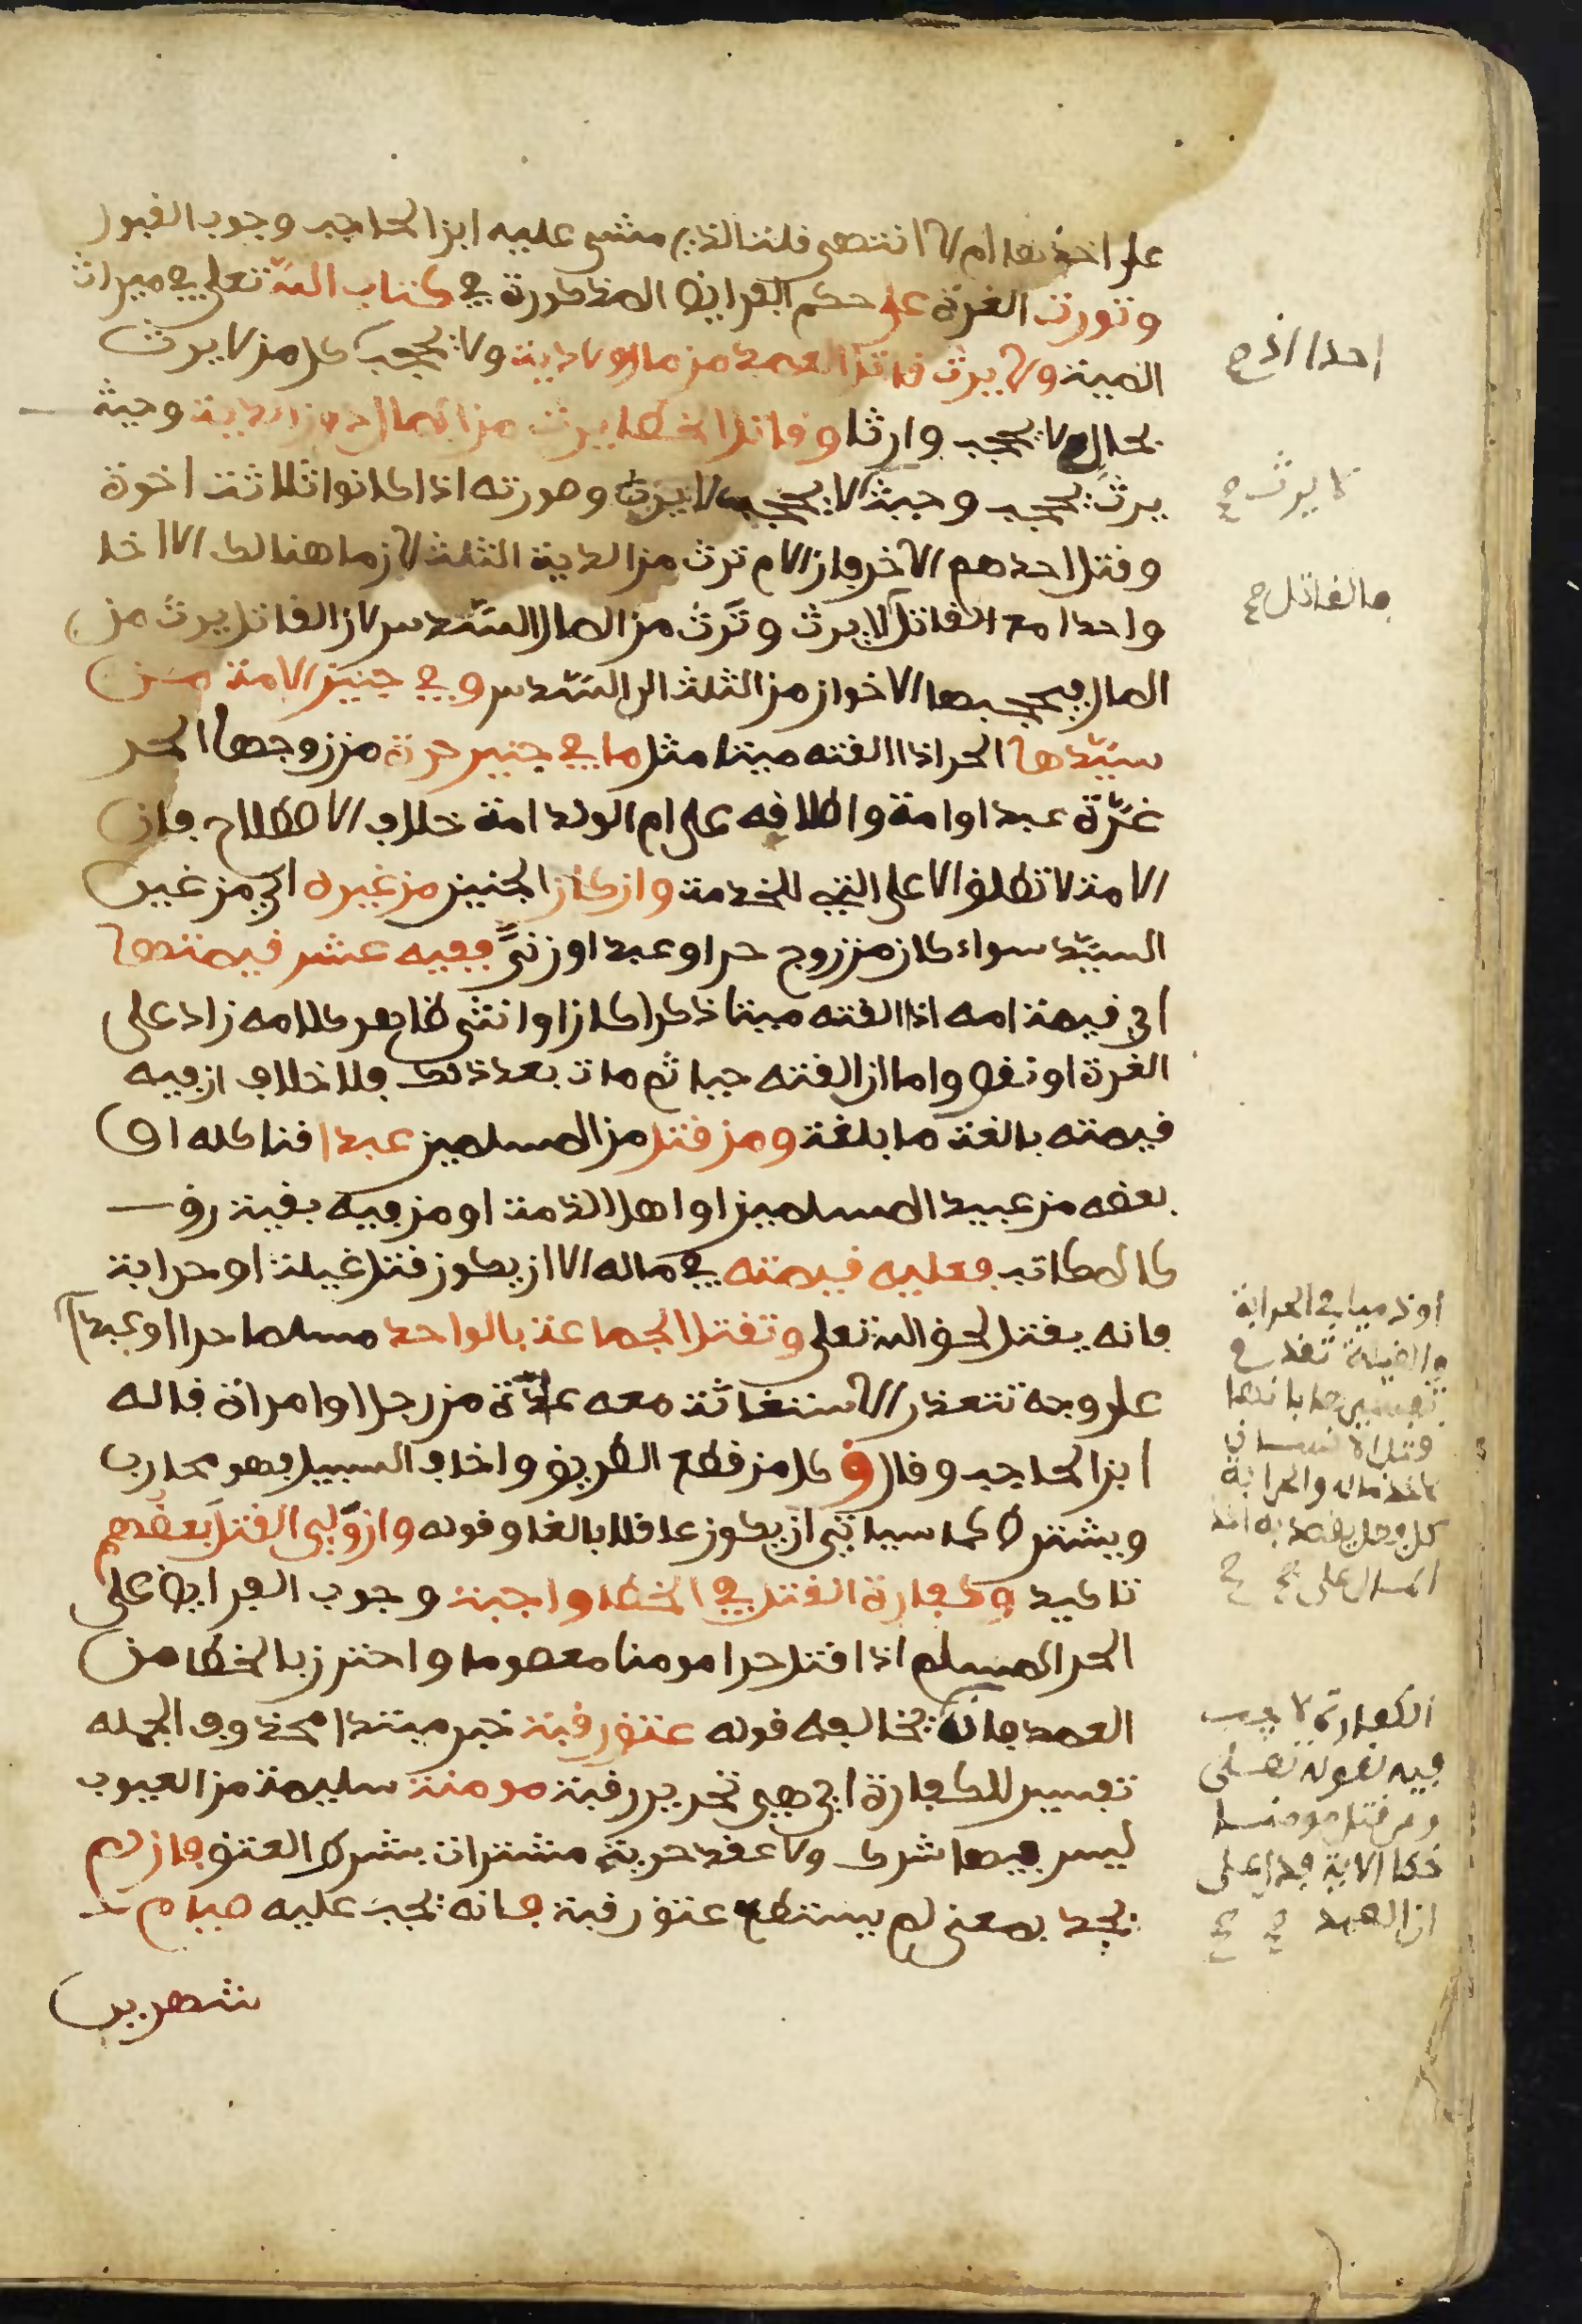 على اخذها ام لا انتهى قلنا الذي مشى عليه ابن الحاجب وجوب القبول
وتورث الغرة على حكم الفرايض المذكورة في كتاب الله تعلى في ميراث
الميت ولا يرث قاتل العمد من مال ولا دية ولا يحجب كل من لا يرث
بحال لا يحجب وارثا وقاتل الخطا يرث من المال دون الدية وحيث
يرث يحجب وحيث لا يحجب لا يرث وصورته اذا كانوا ثلاثة اخوة
وقتل احدهم الاخر فان الام ترث من الدية الثلث لان ما هنالك الا اخا
واحدا مع القاتل لا يرث وترث من المال السدس لان القاتل يرث من
المال فيحجبها الاخوان من الثلث الى السدس وفي جنين الامة من
سيدها الحر اذا القته ميتا مثل ما في جنين حرة من زوجها الحر
غرة عبد او امة واطلاقه على ام الولد امة خلاف الاصطلاح فان
الامة لا تطلق الا على التي للخدمة وان كان الجنين من غيره اي من غير
السيد سواء كان من زوج حر او عبد او زنى ففيه عشر قيمتها
اي قيمة امه اذا القته ميتا ذكرا كان او انثى ظاهر كلامه زاد على
الغرة او نقص واما ان القته حيا ثم مات بعد ذلك فلا خلاف ان فيه
قيمته بالغة ما بلغت ومن قتل من المسلمين عبدا قنا كله او
بعضه من عبيد المسلمين او اهل الذمة او من فيه بقية رق
كالمكاتب فعليه قيمته في ماله الا ان يكون قتل غيلة او حرابة
فانه يقتل لحق الله تعلى وتقتل الجماعة بالواحد مسلما حرا او عبدا
على وجه تتعذر الاستغاثة معه عادة من رجل او امراة قاله
ابن الحاجب وقال ق كل من قطع الطريق واخاف السبيل فهو محارب
ويشترط كما سياتي ان يكون عاقلا بالغا وقوله وان ولي القتل بعضهم
تاكيد وكفارة القتل في الخطا واجبة وجوب الفرايض على
الحر المسلم اذا قتل حرا مومنا معصوما واحترز بالخطا من
العمد فانه يخالفه قوله عتق رقبة خبر مبتدا محذوف الجملة
تفسير للكفارة اي هي تحرير رقبة مومنة سليمة من العيوب
ليس فيها شرك ولا عقد حرية مشتراة بشرط العتق فان لم
يجد بمعنى لم يستطع عتق رقبة فانه يجب عليه صيام
شهرين
احدا اذ ح
لا يرث ح
فالقاتل ح
او ذميا في الحرابة
والغيلة تقدم
تفسيرها بانها
قتل
لاخذ ماله والحرابة
كل فعل يقصد به اخذ
المال على
الكفارة لا تجب
فيه لقوله تعلى
ومن قتل مومنا
خطا الاية فدل على
ان العمد